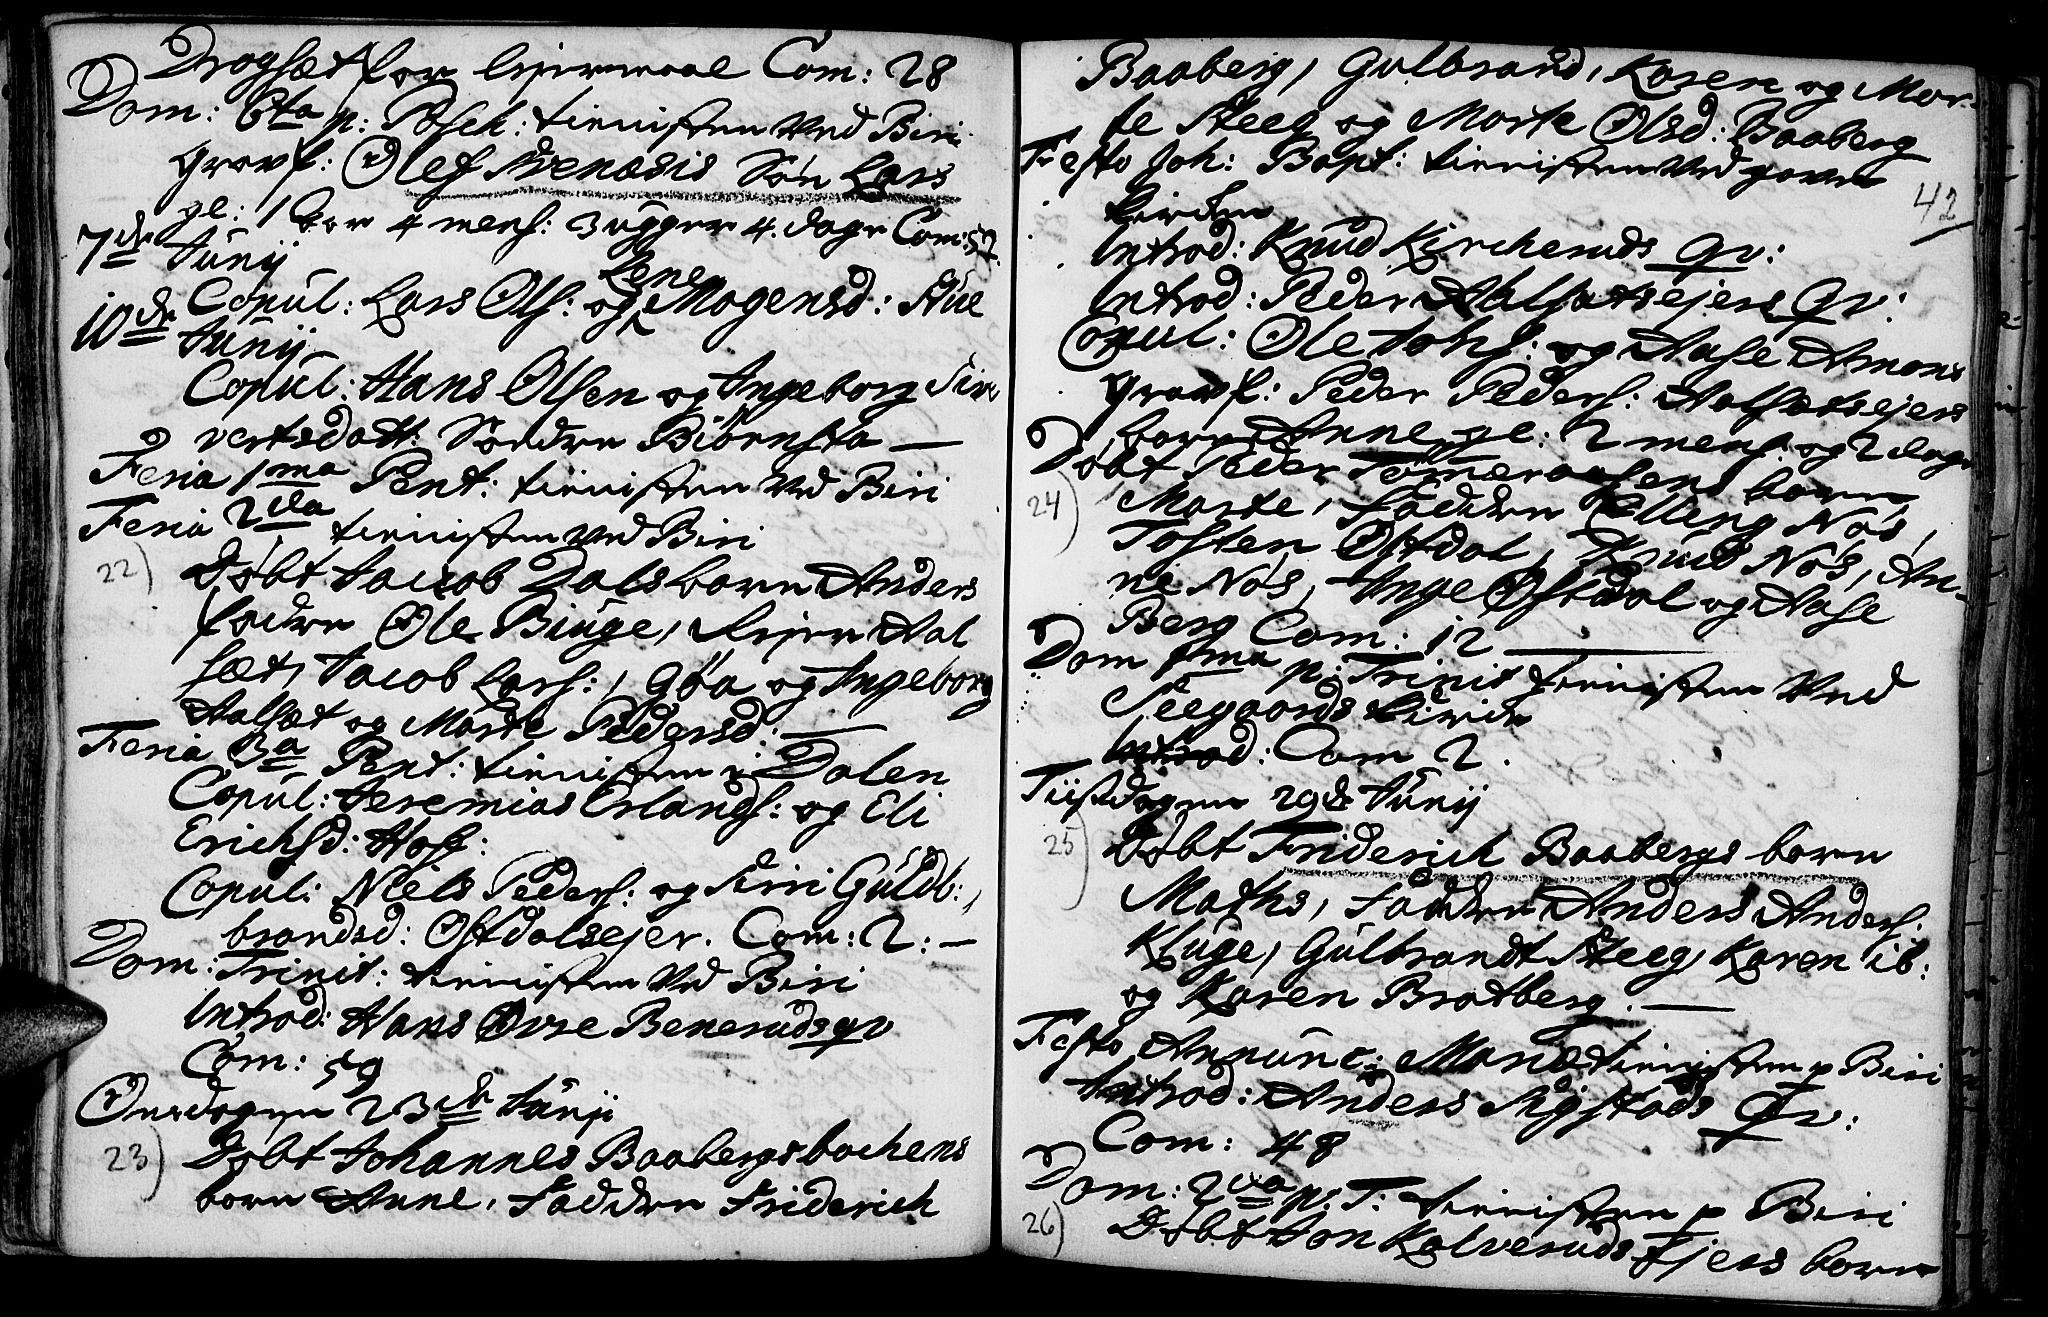 Drogsæt for leiermaal Com: 28
Dom: 6ta p: Pasch: tienisten ved Biri
Gravf: Olef Svenæsis Søn Lars
gl: 1 aar 4 mens: 3 ugger 4 dage Com: 57.
7de Junij
Copul: Lars Ols: og Lene Mogensd: Hue
10de Junij
Copul: Hans Olsen og Ingeborg Siv
vertsdatt: Søndre Biørnsta —
Feria 1ma Pent: tienisten ved Biri
Feria 2da tienisten ved Biri
22)
Døbt Jacob Dals barn Anders
faddre Ole Biuge, Aal
sæt, Jacob Lars:, Gøa og Ingeborg
Aalsæt og Marte Pedersd: —
Feria 3a Pent: tienisten i Dalen
Copul: Jeremias Erlands: og Eli
Erichsd: Hoff:
Copul: Niels Peders: og Siri Guldb:
brandsd: Østdalsejer. Com: 2: —
Dom: Trinit: tienisten ved Biri
Introd: Hans Øvre Benerudsqv
Com: 59
Onsdagen 23de Junij
23)
Døbt Johannes Baabergsbachens
barn Anne, Faddre Friderich
Baaberg, Gulbrand, Karen og Mar-
te Steeg og Marte Olsd: Baaberg
42
Festo Joh: Bapt: tienisten ved
kirchen
Introd: Knud Kircheruds qv:
Introd: Peder Aalsætsejers Qv:
Copul: Ole Johs: og Aase Amons
Gravf: Peder Peders: Aalsætsejers
barn Anne gl: 2 mens: og 2 dage
24)
Døbt Peder Tømeraasens barn
Marte, Faddre Elling Nøs,
Tosten Østdal, Knud Nøs, An-
ne Nøs, Inge Østdal og Aase
Berg Com: 12 —
Dom 1ma p: Trinit tienisten ved
Seegaards kirche
Introd: Com 2.
Tiisdagen 29de Junij
25)
Døbt Friderich Baabergs barn
Maths, Faddre Anders Anders:
Kluge, Gulbrandt Steeg, Karen ib:
og Karen Bratberg. —
Festo Annunc: Mariæ tienisten p Biri
Introd: Anders Rystads Qv:
Com: 48
Dom: 2da p: T: tienisten p Biri
26)
Døbt Jon Kalverudsejers barn